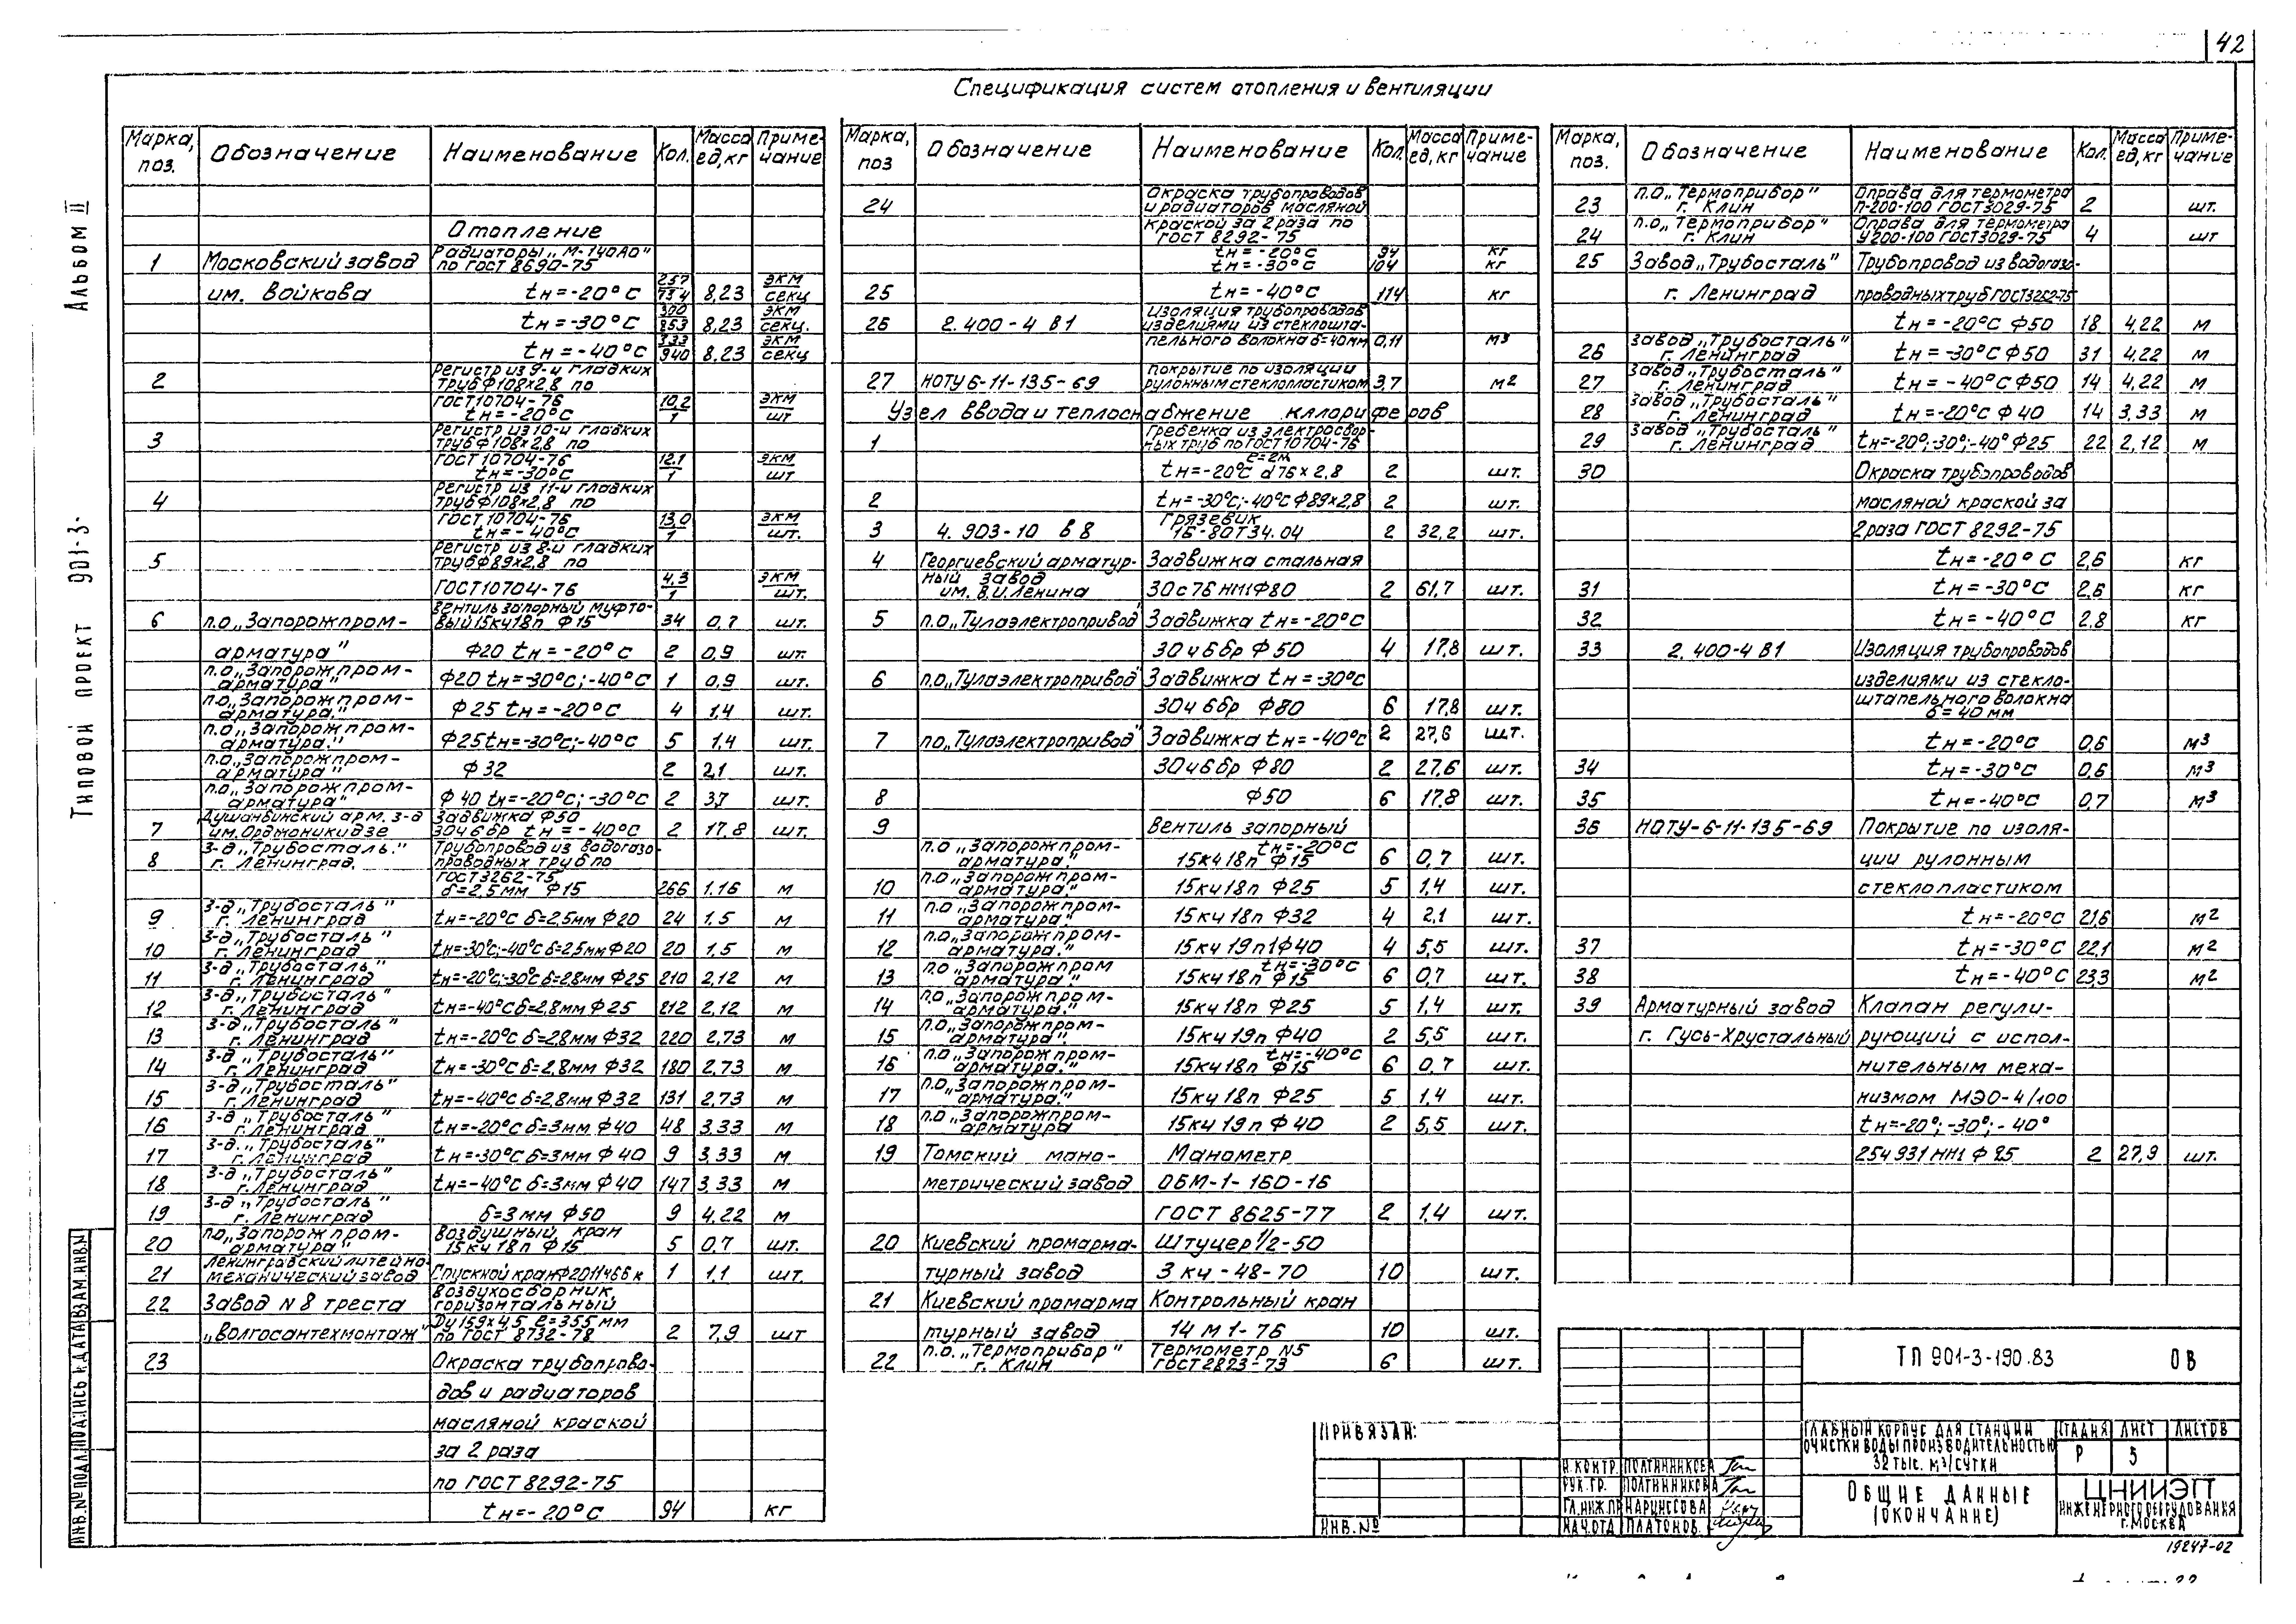 42
Спецификация систем отопления и вентиляции
Альбом II
Типовой проект 901-3-
Марка, поз. Обозначение Наименование Кол. Масса ед, кг Примечание
Отопление
1 Московский завод Радиаторы „М-140АО" по ГОСТ 8690-75
им. Войкова tн=-20°С 257/734 8,23 экм/секц
tн=-30°С 300/853 8,23 экм/секц.
tн=-40°С 333/940 8,23 экм/секц
2 Регистр из 9-и гладких труб Ф108х2,8 по
ГОСТ 10704-76 tн=-20°С 10,2/1 экм/шт
3 Регистр из 10-и гладких труб Ф108х2,8 по
ГОСТ 10704-76 tн=-30°С 12,1/1 экм/шт
4 Регистр из 11-и гладких труб Ф108х2,8 по
ГОСТ 10704-76 tн=-40°С 13,0/1 экм/шт.
5 Регистр из 8-и гладких труб Ф89х2,8 по
ГОСТ 10704-76 4,3/1 экм/шт.
6 п.о„Запорожпром- Вентиль запорный муфтовый 15кч18п Ф15 34 0,7 шт.
арматура" Ф20 tн=-20°С 2 0,9 шт.
п.о„Запорожпром-арматура" Ф20 tн=-30°С;-40°С 1 0,9 шт.
п.о„Запорожпром-арматура." Ф25 tн=-20°С 4 1,4 шт.
п.о„Запорожпром-арматура." Ф25 tн=-30°С;-40°С 5 1,4 шт.
п.о„Запорожпром-арматура" Ф32 2 2,1 шт.
п.о„Запорожпром-арматура" Ф40 tн=-20°С;-30°С 2 3,7 шт.
7 Душанбинский арм. з-д им.Орджоникидзе Задвижка Ф50 30ч6бр tн=-40°С 2 17,8 шт.
8 з-д„Трубосталь." г. Ленинград. Трубопровод из водогазопроводных труб по
ГОСТ 3262-75 δ=2,5мм Ф15 266 1,16 м
9 з-д„Трубосталь" г. Ленинград tн=-20°С δ=2,5мм Ф20 24 1,5 м
10 з-д„Трубосталь" г. Ленинград tн=-30°С;-40°С δ=2,5мм Ф20 20 1,5 м
11 з-д„Трубосталь" г. Ленинград tн=-20°С;-30°С δ=2,8мм Ф25 210 2,12 м
12 з-д„Трубосталь" г. Ленинград tн=-40°С δ=2,8мм Ф25 212 2,12 м
13 з-д„Трубосталь" г. Ленинград tн=-20°С δ=2,8мм Ф32 220 2,73 м
14 з-д„Трубосталь" г. Ленинград tн=-30°С δ=2,8мм Ф32 180 2,73 м
15 з-д„Трубосталь" г. Ленинград tн=-40°С δ=2,8мм Ф32 131 2,73 м
16 з-д„Трубосталь" г. Ленинград tн=-20°С δ=3мм Ф40 48 3,33 м
17 з-д„Трубосталь" г. Ленинград tн=-30°С δ=3мм Ф40 9 3,33 м
18 з-д„Трубосталь" г. Ленинград tн=-40°С δ=3мм Ф40 147 3,33 м
19 з-д„Трубосталь" г. Ленинград δ=3мм Ф50 9 4,22 м
20 п.о„Запорожпром-арматура" Воздушный кран 15кч18п Ф15 5 0,7 шт.
21 Ленинградский литейно-механический завод Спускной кран Ф20 11ч6бк 1 1,1 шт.
22 Завод N8 треста Воздухосборник горизонтальный
„Волгосантехмонтаж" Ду159х4,5 ℓ=355мм по ГОСТ 8732-78 2 7,9 шт
23 Окраска трубопрово-
дов и радиаторов
масляной краской
за 2 раза
по ГОСТ 8292-75
tн=-20°С 94 кг
Марка, поз Обозначение Наименование Кол. Масса ед, кг Примечание
24 Окраска трубопроводов и радиаторов масляной
краской за 2 раза по ГОСТ 8292-75
tн=-20°С 94 кг
tн=-30°С 104 кг
25 tн=-40°С 114 кг
26 2.400-4 В1 Изоляция трубопроводов изделиями из стеклошта-
пельного волокна δ=40мм 0,11 м3
27 НОТУ 6-11-135-69 Покрытие по изоляции рулонным стеклопластиком 3,7 м2
Узел ввода и теплоснабжение клориферов
1 Гребенка из электросвор-ных труб по ГОСТ 10704-76
ℓ=2м
tн=-20°С d76х2,8 2 шт.
2 tн=-30°С;-40°С Ф89х2,8 2 шт.
3 4.903-10 в 8 Грязевик 16-80Т34.04 2 32,2 шт.
4 Георгиевский арматур- Задвижка стальная
ный завод им. В.И.Ленина 30с76нж1Ф80 2 61,7 шт.
5 п.о„Тулаэлектропривод" Задвижка tн=-20°С
30ч6бр Ф50 4 17,8 шт.
6 п.о„Тулаэлектропривод" Задвижка tн=-30°С
30ч6бр Ф80 6 17,8 шт.
7 по„Тулаэлектропривод" Задвижка tн=-40°С 2 27,6 шт.
30ч6бр Ф80 2 27,6 шт.
8 Ф50 6 17,8 шт.
9 Вентиль запорный
п.о„Запорожпром-арматура." tн=-20°С 15кч18п Ф15 6 0,7 шт.
10 п.о„Запорожпром-арматура." 15кч18п Ф25 5 1,4 шт.
11 п.о„Запорожпром-арматура". 15кч18п Ф32 4 2,1 шт.
12 п.о„Запорожпром-арматура." 15кч19п1Ф40 4 5,5 шт.
13 п.о„Запорожпром арматура". tн=-30°С 15кч18п Ф15 6 0,7 шт.
14 п.о„Запорожпром-арматура." 15кч18п Ф25 5 1,4 шт.
15 п.о„Запорожпром-арматура". 15кч19п Ф40 2 5,5 шт.
16 п.о„Запорожпром-арматура." tн=-40°С 15кч18п Ф15 6 0,7 шт.
17 п.о„Запорожпром-арматура." 15кч18п Ф25 5 1,4 шт.
18 п.о„Запорожпром-арматура 15кч19п Ф40 2 5,5 шт.
19 Томский мано- Манометр
метрический завод ОБМ-1-160-16
ГОСТ 8625-77 2 1,4 шт.
20 Киевский промарма- Штуцер 1/2-50
турный завод 3кч-48-70 10 шт.
21 Киевский промарма Контрольный кран
турный завод 14М1-76 10 шт.
22 п.о.„Термоприбор" г. Клин Термометр N5 ГОСТ 2823-73 6 шт.
Марка, поз. Обозначение Наименование Кол. Масса ед, кг Примечание
23 п.о„Термоприбор" г. Клин Оправа для термометра П-200-100 ГОСТ 3029-75 2 шт.
24 п.о„Термоприбор" г. Клин Оправа для термометра У200-100 ГОСТ 3029-75 4 шт
25 Завод„Трубосталь" Трубопровод из водогазо-
г. Ленинград проводных труб ГОСТ 3262-75
tн=-20°С Ф50 18 4,22 м
26 завод„Трубосталь" г. Ленинград tн=-30°С Ф50 31 4,22 м
27 завод„Трубосталь" г. Ленинград tн=-40°С Ф50 14 4,22 м
28 завод„Трубосталь" г. Ленинград tн=-20°С Ф40 14 3,33 м
29 завод„Трубосталь" г. Ленинград tн=-20°;-30°;-40° Ф25 22 2,12 м
30 Окраска трубопроводов
масляной краской за
2 раза ГОСТ 8292-75
tн=-20°С 2,6 кг
31 tн=-30°С 2,6 кг
32 tн=-40°С 2,8 кг
33 2.400-4 В1 Изоляция трубопроводов
изделиями из стекло-
штапельного волокна δ=40мм
tн=-20°С 0,6 м3
34 tн=-30°С 0,6 м3
35 tн=-40°С 0,7 м3
36 НОТУ-6-11-135-69 Покрытие по изоля-
ции рулонным
стеклопластиком
tн=-20°С 21,6 м2
37 tн=-30°С 22,1 м2
38 tн=-40°С 23,3 м2
39 Арматурный завод Клапан регули-
г. Гусь-Хрустальный рующий с испол-
нительным меха-
низмом МЭО-4/100
tн=-20°;-30°;-40°
25ч931нж1 Ф25 2 27,9 шт.
ТП 901-3-190.83 ОВ
Привязан:
Инв.№
Н.контр. Полтинникова
Рук.гр. Полтинникова
Гл.инж.пр Нарциссова
Нач.отд Платонов.
Главный корпус для станции очистки воды производительностью 32 тыс. м3/сутки
Стадия Лист Листов
Р 5
Общие данные (окончание)
ЦНИИЭП инженерного оборудования г.Москва
19247-02
Инв.№подл. Подпись и дата Взам.инв.N